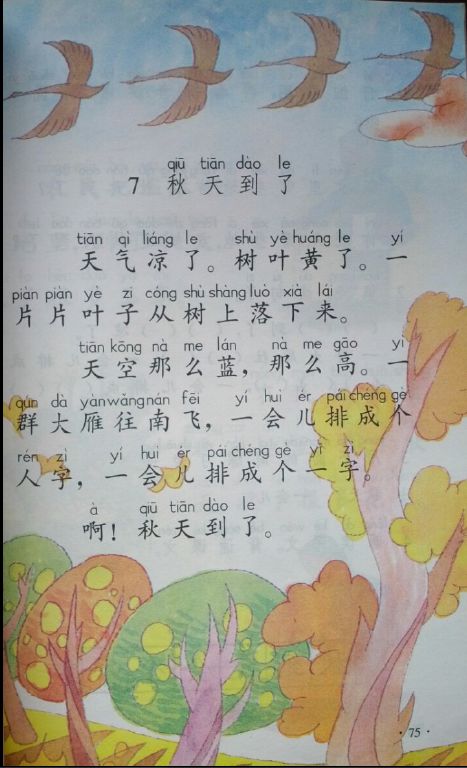 qiū tiān dào le
7 秋天到了
tiān qì liáng le shù yè huáng le yí
天气凉了。树叶黄了。一
piàn piàn yè zi cóng shù shàng luò xià lái
片片叶子从树上落下来。
tiān kōng nà me lán nà me gāo yì
天空那么蓝，那么高。一
qún dà yàn wǎng nán fēi yí huì ér pái chéng gè
群大雁往南飞，一会儿排成个
rén zì yí huì ér pái chéng gè yī zì
人字，一会儿排成个一字。
à qiū tiān dào le
啊！秋天到了。
·75·